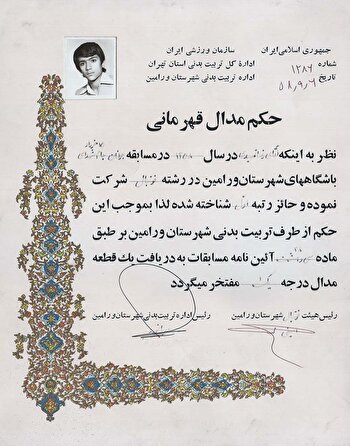 جمهوری اسلامی ایران
شماره ۱۲۸۶
تاریخ ۵۸٫۹٫۶
سازمان ورزشی ایران
اداره کل تربیت بدنی استان تهران
اداره تربیت بدنی شهرستان ورامین
حکم مدال قهرمانی
نظر به اینکه در سال در مسابقه
باشگاههای شهرستان ورامین در رشته فوتبال شرکت
نموده و حائز رتبه اول شناخته شده لذا بموجب این
حکم از طرف تربیت بدنی شهرستان ورامین بر طبق
ماده آئین نامه مسابقات به دریافت یك قطعه
مدال درجه یک مفتخر میگردد
رئیس هیئت شهرستان ورامین
رئیس اداره تربیت بدنی شهرستان ورامین